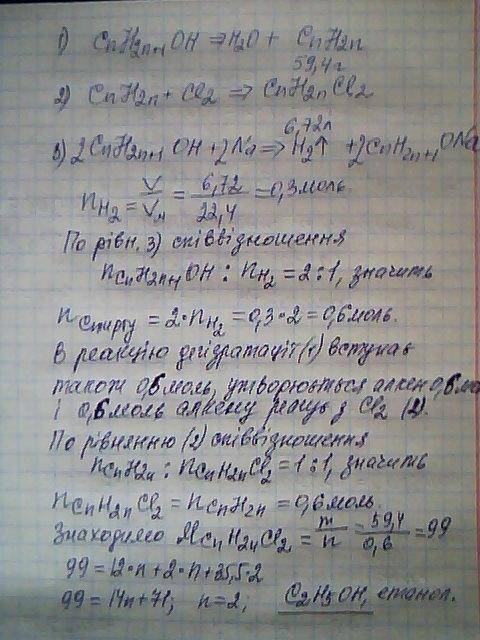 1) CnH2n+1 OH ⇒ H2O + CnH2n
59,4г
2) CnH2n + Cl2 ⇒ CnH2nCl2
6,72л
3) 2CnH2n+1 OH + 2Na ⇒ H2↑ + 2CnH2n+1ONa
nH2 = V/Vм = 6,72/22,4 = 0,3моль.
По рівн. 3) співвізношення
nCnH2n+1OH : nH2 = 2:1, значить
n спирту = 2·nH2 = 0,3·2 = 0,6моль.
В реакцію дегідратації (1) вступає
також 0,6моль, утворюється алкен 0,6мо
і 0,6моль алкену реагує з Cl2 (2).
По рівнянню (2) співвізношення
nCnH2n : nCnH2nCl2 = 1:1, значить
nCnH2nCl2 = nCnH2n = 0,6моль.
Знаходимо MCnH2nCl2 = m/n = 59,4/0,6 = 99
99 = 12·n + 2·n + 35,5·2
99 = 14n + 71; n = 2; C2H5OH, етанол.